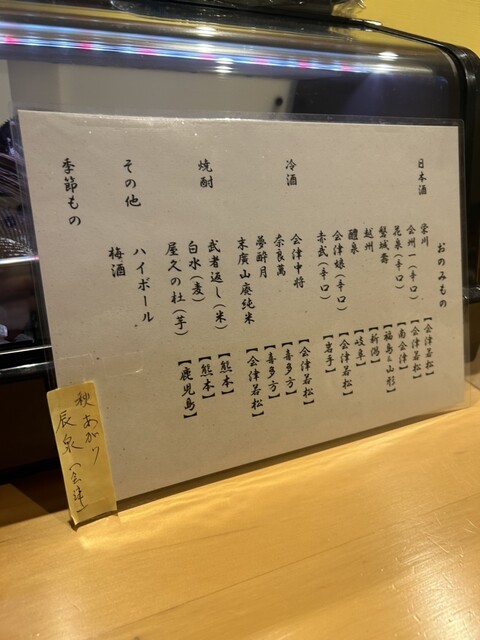 おのみもの
日本酒
栄川【会津若松】
会州一(辛口)【会津若松】
花泉(辛口)【南会津】
磐城壽【福島と山形】
越州【新潟】
醴泉【岐阜】
会津娘(辛口)【会津若松】
赤武(辛口)【岩手】
冷酒
会津中将【会津若松】
奈良萬【喜多方】
夢酔月【喜多方】
末廣山廃純米【会津若松】
焼酎
武者返し(米)【熊本】
白水(麦)【熊本】
屋久の杜(芋)【鹿児島】
その他
ハイボール
梅酒
季節もの
秋あがり
辰泉(会津)